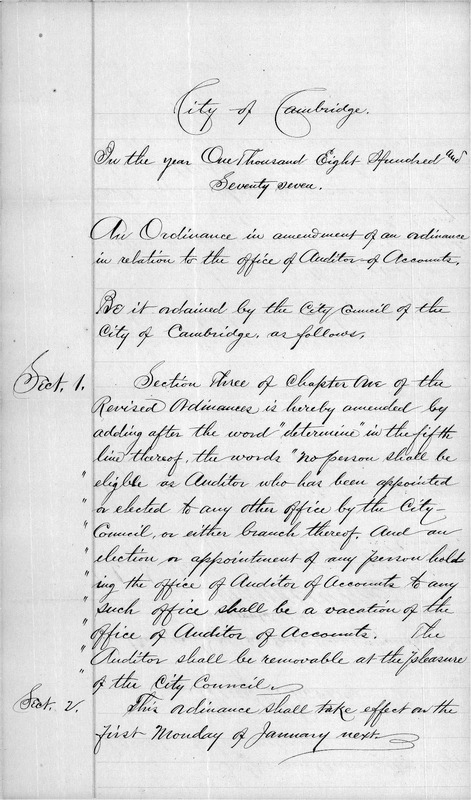 City of Cambridge.
In the year One Thousand Eight Hundred and
Seventy seven.
An Ordinance in amendment of an ordinance
in relation to the office of Auditor of Accounts.
Be it ordained by the City Council of the
City of Cambridge, as follows,
Sect. 1. Section Three of Chapter One of the
Revised Ordinances is hereby amended by
adding after the word "determine" in the fifth
line thereof, the words "No person shall be
" eligble as Auditor who has been appointed
" or elected to any other office by the City
" Council, or either branch thereof. And an
" election or appointment of any person hold
" ing the office of Auditor of Accounts to any
" such office shall be a vacation of the
" office of Auditor of Accounts. The
" Auditor shall be removable at the pleasure
" of the City Council.
Sect. 2. This ordinance shall take effect on the
first Monday of January next.